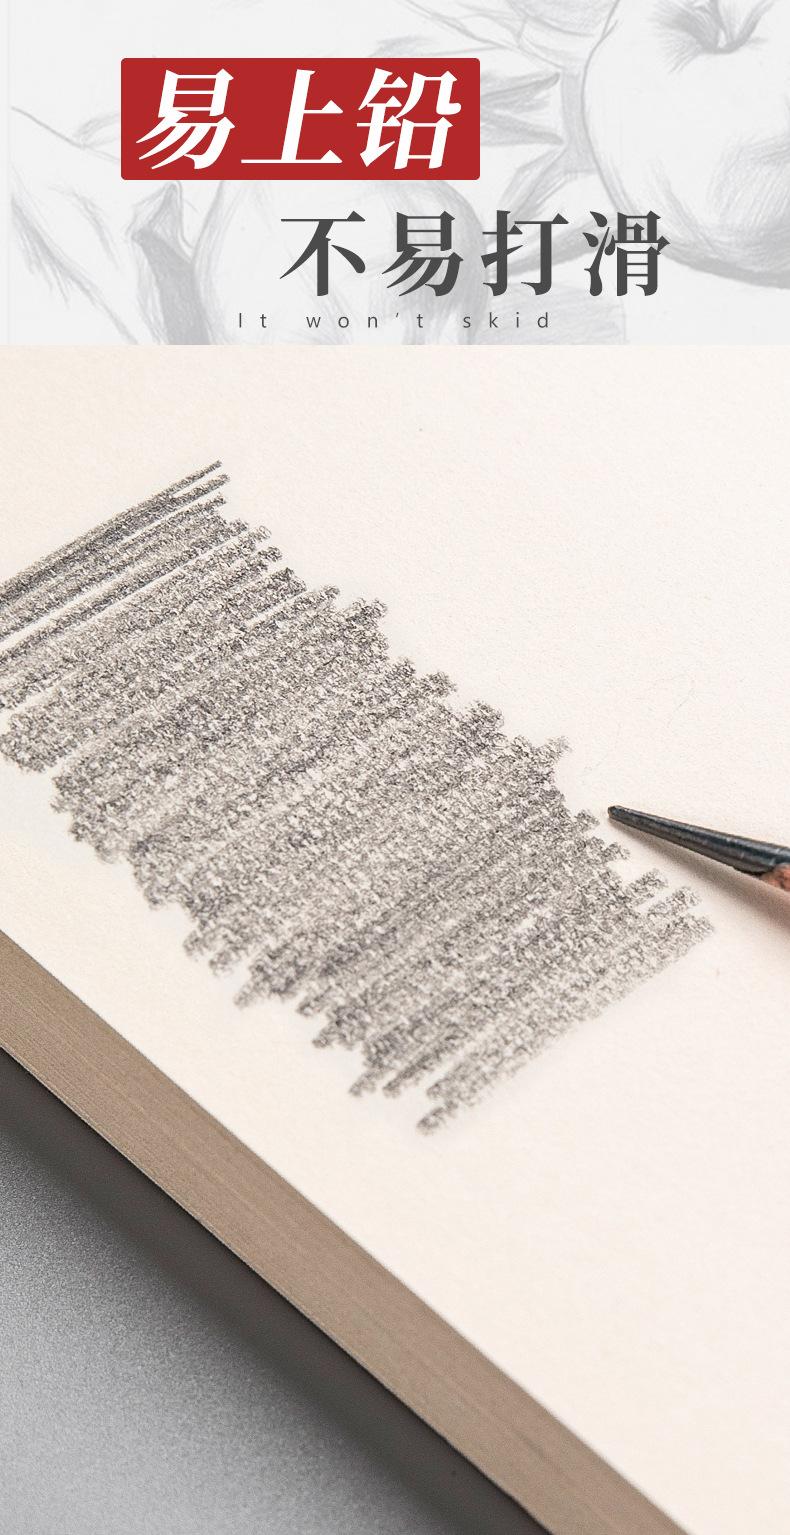 易上铅
不易打滑
It won't skid